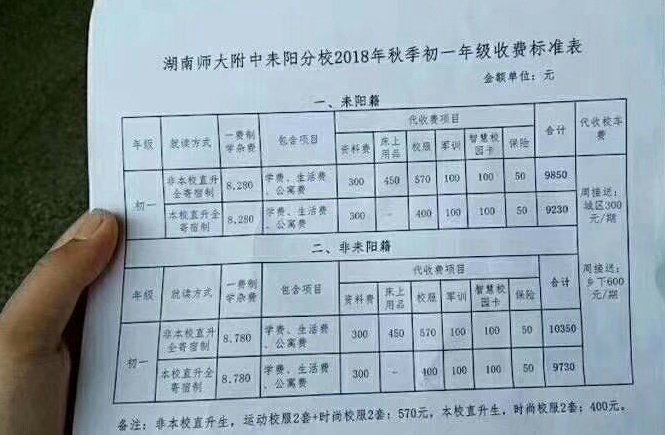 湖南师大附中耒阳分校2018年秋季初一年级收费标准表
金额单位：元
一、耒阳籍
年级 就读方式 一费制学杂费 包含项目 代收费项目 合计 代收校车费
资料费 床上用品 校服 军训 智慧校园卡 保险
初一 非本校直升全寄宿制 8,280 学费、生活费、公寓费 300 450 570 100 100 50 9850
本校直升全寄宿制 8,280 学费、生活费、公寓费 300 - 400 100 100 50 9230
周接送：城区300元/期
二、非耒阳籍
年级 就读方式 一费制学杂费 包含项目 代收费项目 合计
资料费 床上用品 校服 军训 智慧校园卡 保险
周接送：乡下600元/期
初一 非本校直升全寄宿制 8.780 学费、生活费、公寓费 300 450 570 100 100 50 10350
本校直升全寄宿制 8.780 学费、生活费、公寓费 300 - 400 100 100 50 9730
备注：非本校直升生，运动校服2套+时尚校服2套：570元，本校直升生，时尚校服2套：400元。